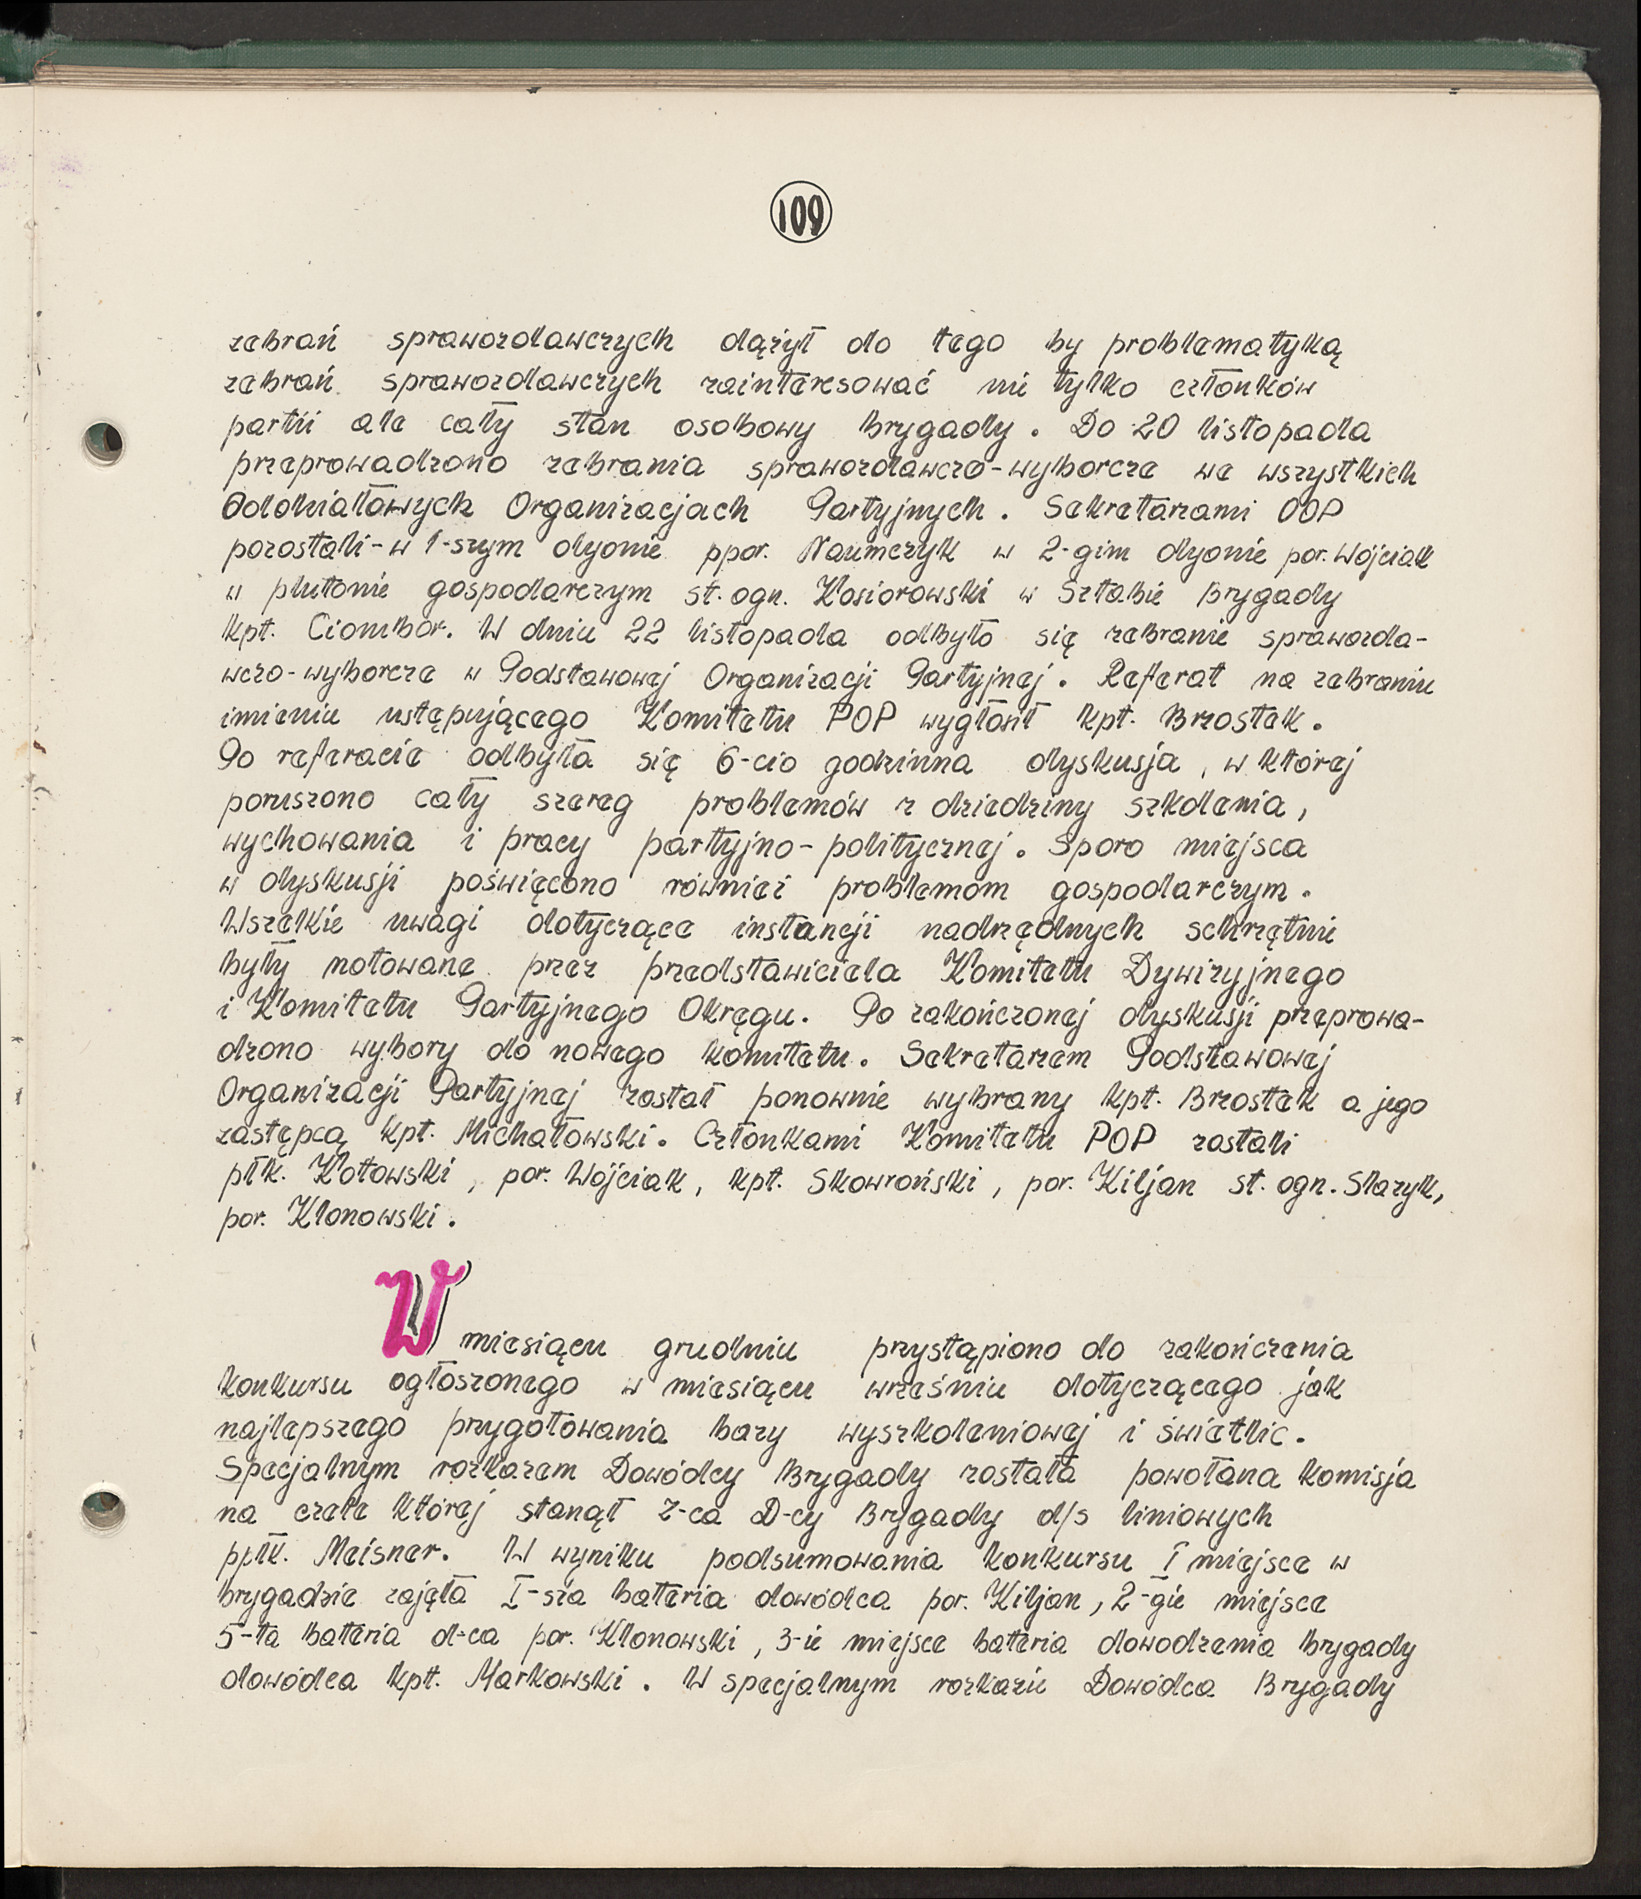 109
zebrań sprawozdawczych dążył do tego by problematyką
zebrań sprawozdawczych zainteresować nie tylko członków
partii ale cały stan osobowy brygady. Do 20 listopada
przeprowadzono zebrania sprawozdawczo-wyborcze we wszystkich
Oddziałowych Organizacjach Partyjnych. Sekretarzami OOP
pozostali-w 1-szym dyonie ppor. Naumczyk w 2-gim dyonie por. Wójciak
w plutonie gospodarczym st. ogn. Kosiorowski w Sztabie Brygady
kpt. Ciombor. W dniu 22 listopada odbyło się zebranie sprawozda-
wczo-wyborcze w Podstawowej Organizacji Partyjnej. Referat na zebraniu
imieniu ustępującego Komitetu POP wygłosił kpt. Brzostek.
Po referacie odbyła się 6-cio godzinna dyskusja, w której
poruszono cały szereg problemów z dziedziny szkolenia,
wychowania i pracy partyjno-politycznej. Sporo miejsca
w dyskusji poświęcono również problemom gospodarczym.
Wszelkie uwagi dotyczące instancji nadrzędnych schrzętnie
były notowane przez przedstawiciela Komitetu Dywizyjnego
i Komitetu Partyjnego Okręgu. Po zakończonej dyskusji przeprowa-
dzono wybory do nowego komitetu. Sekretarzem Podstawowej
Organizacji Partyjnej został ponownie wybrany kpt. Brzostek a jego
zastępcą kpt. Michałowski. Członkami Komitetu POP zostali
płk. Kotowski, por. Wójciak, kpt. Skowroński, por. Kiljan st. ogn. Stazyk,
por. Klonowski.
W miesiącu grudniu przystąpiono do zakończenia
konkursu ogłoszonego w miesiącu wrześniu dotyczącego jak
najlepszego przygotowania bazy wyszkoleniowej i świetlic.
Specjalnym rozkazem Dowódcy Brygady została powołana komisja
na czele której stanął z-ca D-cy Brygady d/s liniowych
ppłk. Meisner. W wyniku podsumowania konkursu I miejsce w
brygadzie zajęła I-sza bateria dowódca por. Kiljan, 2-gie miejsce
5-ta bateria d-ca por. Klonowski, 3-ie miejsce bateria dowodzenia brygady
dowódca kpt. Markowski. W specjalnym rozkazie Dowódca Brygady